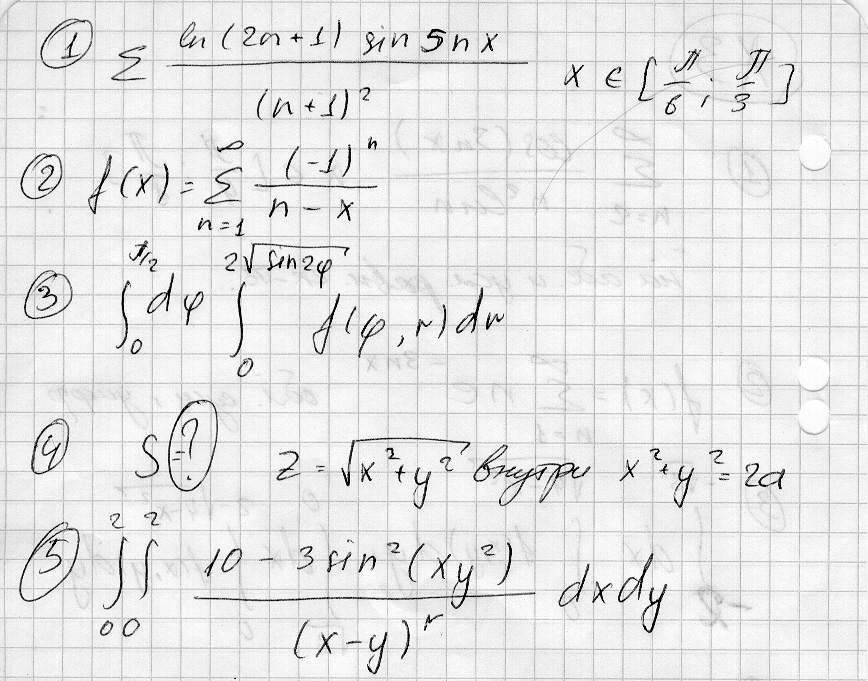 ① Σ ln(2n+1) sin 5nx / (n+1)² x ∈ [π/6; π/3]
② f(x) = Σ_{n=1}^{∞} (-1)ⁿ / (n - x)
③ ∫₀^{π/2} dφ ∫₀^{2√(sin2φ)} f(φ, r) dr
④ S = ? z = √(x² + y²) внутри x² + y² = 2a
⑤ ∫₀² ∫₀² (10 - 3 sin²(xy²)) / (x - y)ʳ dxdy